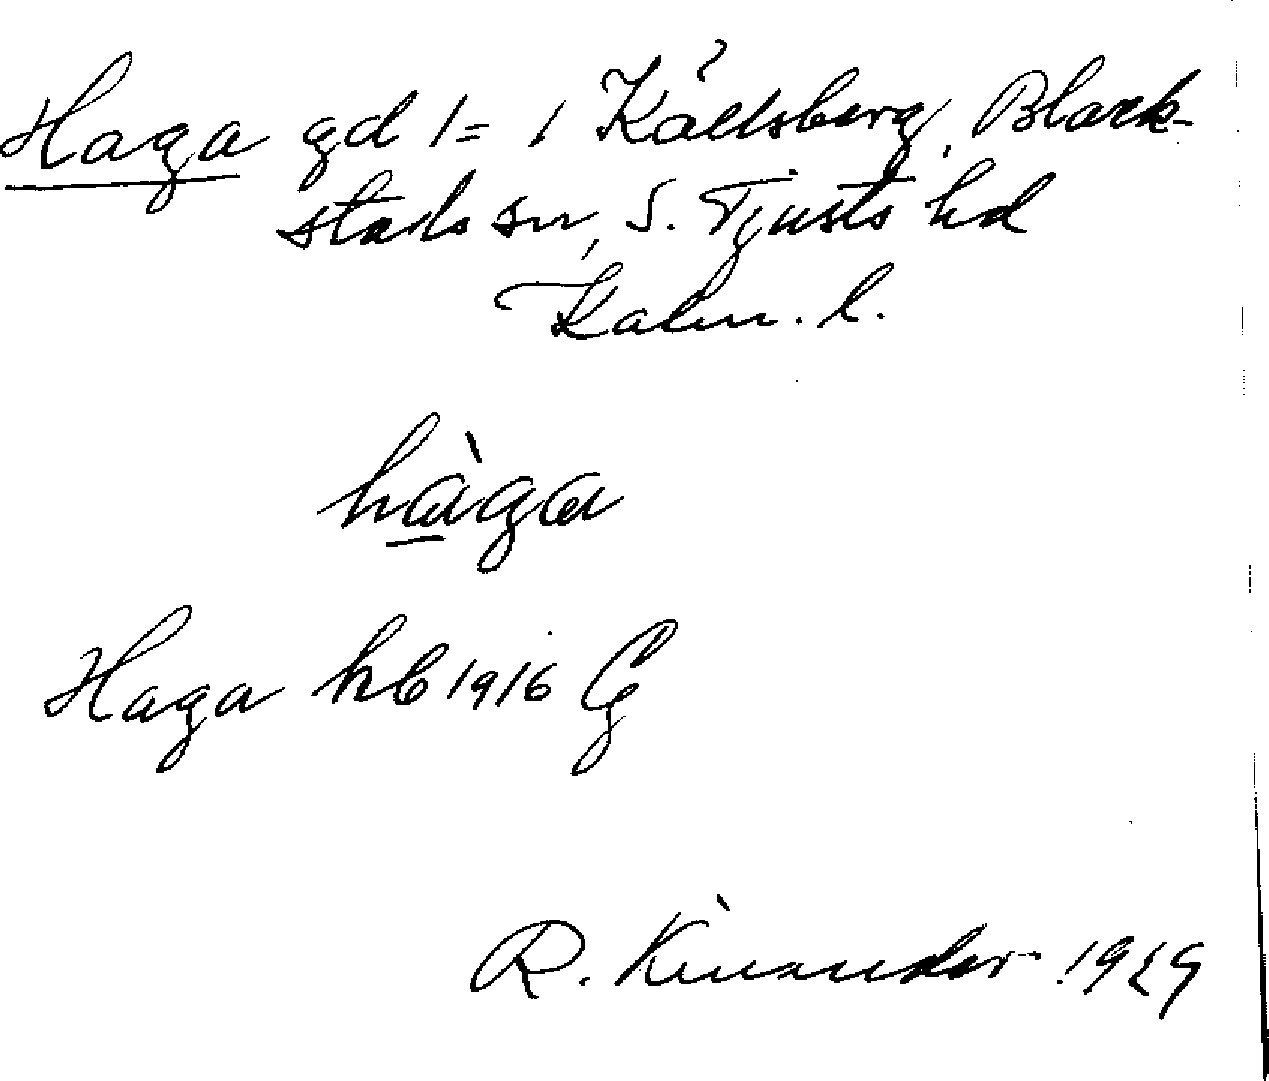 Haga gd 1= i Källsberg, Black-
stads sn, S. Tjusts hd
Kalm. l.
hàga
Haga hb 1916 Cg
R. Kinander 1929